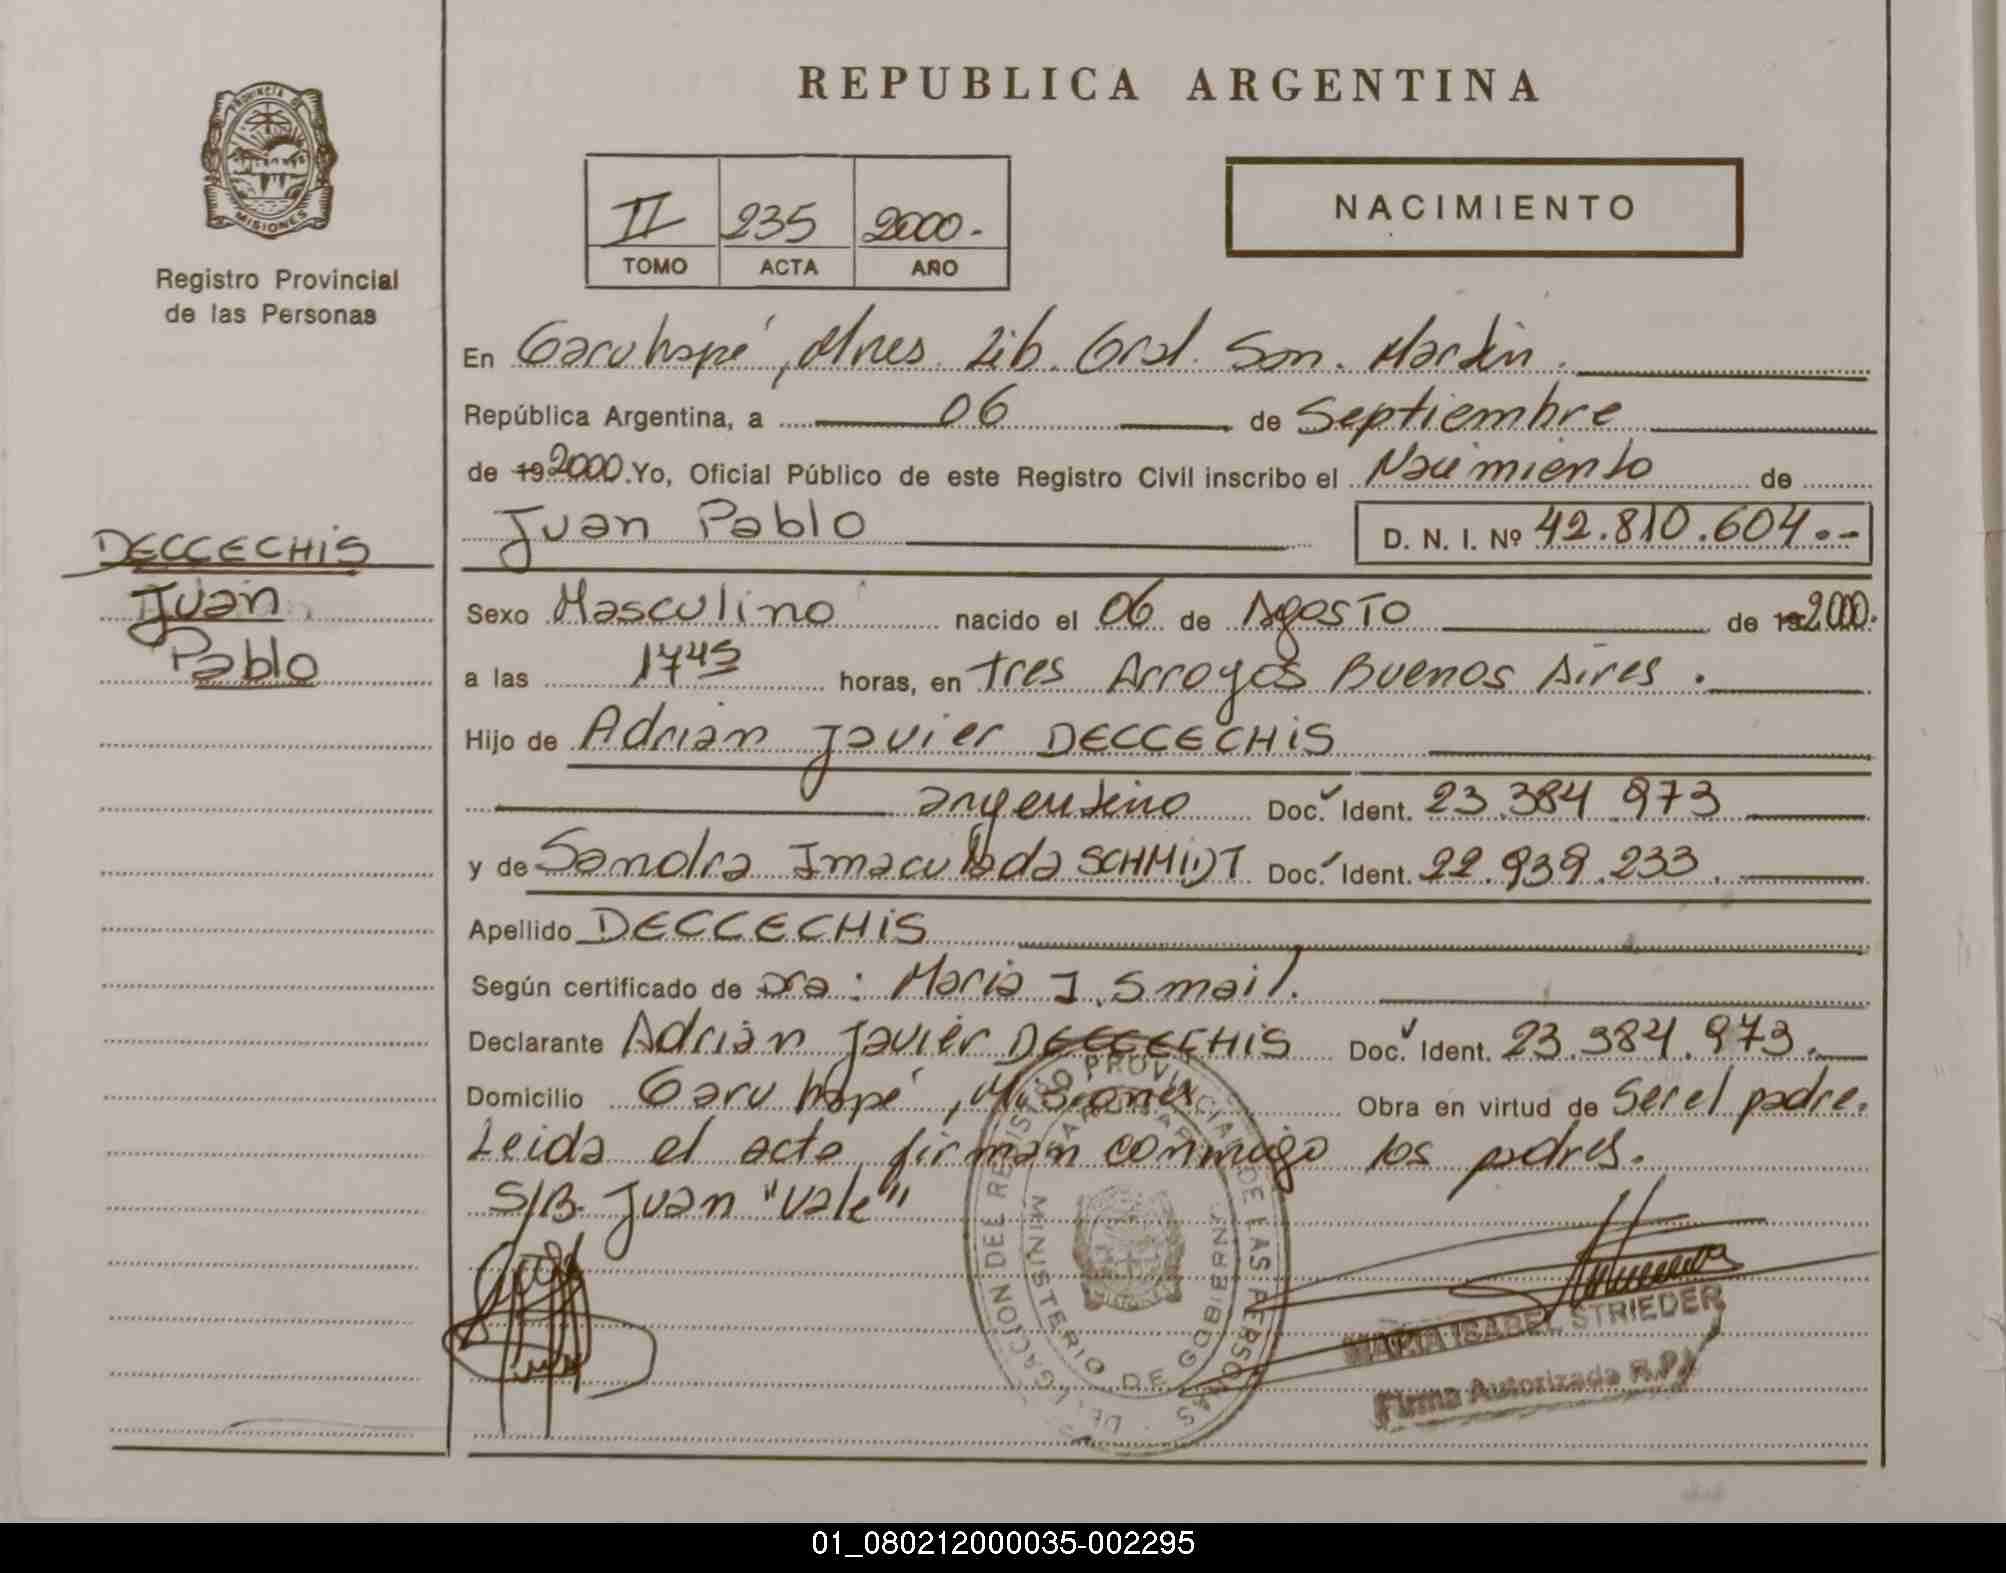 REPUBLICA ARGENTINA
PROVINCIA DE
MISIONES
Registro Provincial
de las Personas
II 235 2000.-
TOMO ACTA AÑO
NACIMIENTO
En Garuhapé, Mnes. Lib. Gral. San. Martin.
República Argentina, a 06 de Septiembre
de 19 2000. Yo, Oficial Público de este Registro Civil inscribo el Nacimiento de
Juan Pablo D. N. I. Nº 42.810.604.-
DECCECHIS
Juan
Pablo
Sexo Masculino nacido el 06 de Agosto de 19 2000.
a las 17 45 horas, en Tres Arroyos Buenos Aires.
Hijo de Adrián Javier DECCECHIS
argentino Doc. Ident. 23.384.973
y de Sandra Imaculada SCHMIDT Doc. Ident. 22.939.233.
Apellido DECCECHIS
Según certificado de Dra: Maria J. Smail.
Declarante Adrián Javier DECCECHIS Doc. Ident. 23.384.973.
Domicilio Garuhapé, Misiones Obra en virtud de Ser el padre.
Leida el acta firman conmigo los padres.
S/B. Juan "Vale"
DELEGACION DEL REGISTRO PROVINCIAL DE LAS PERSONAS
MINISTERIO DE GOBIERNO
MARIA ISABEL STRIEDER
Firma Autorizada R.P.
01_080212000035-002295